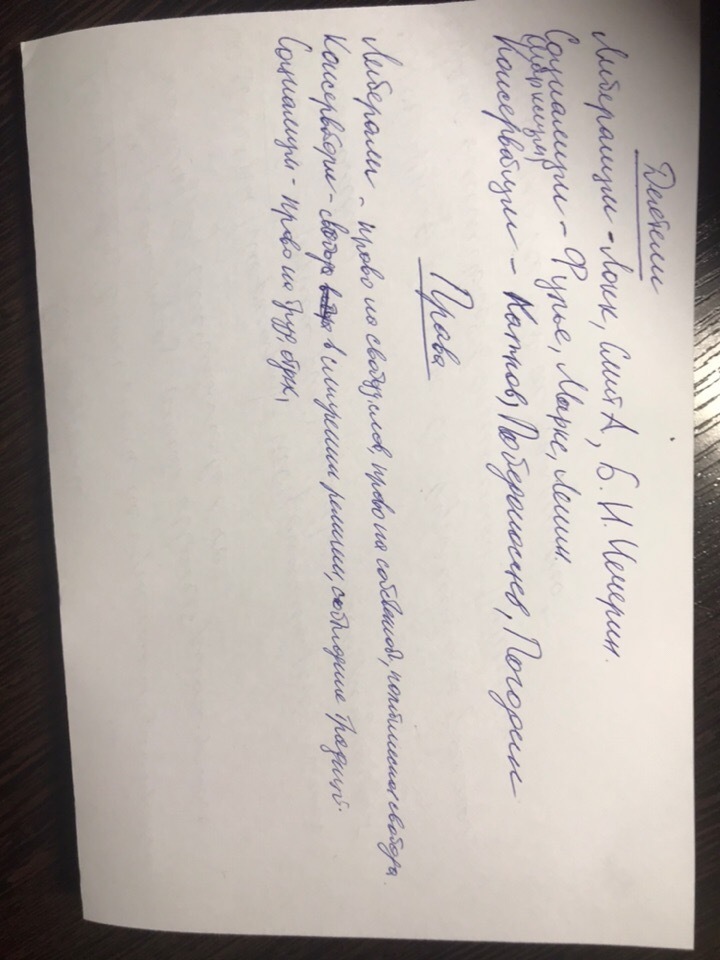 Деятели
Либерализм - Локк, Смит А, Б. И. Чичерин.
Социализм - Фурье, Маркс, Ленин.
(марксизм)
Консерватизм - Катков, Победоносцев, Погодин
Права
Либералы - право на свободу слова, право на собственность, политическая свобода.
Консерваторы - свобода в религии, соблюдение традиций.
Социализм - право на труд,